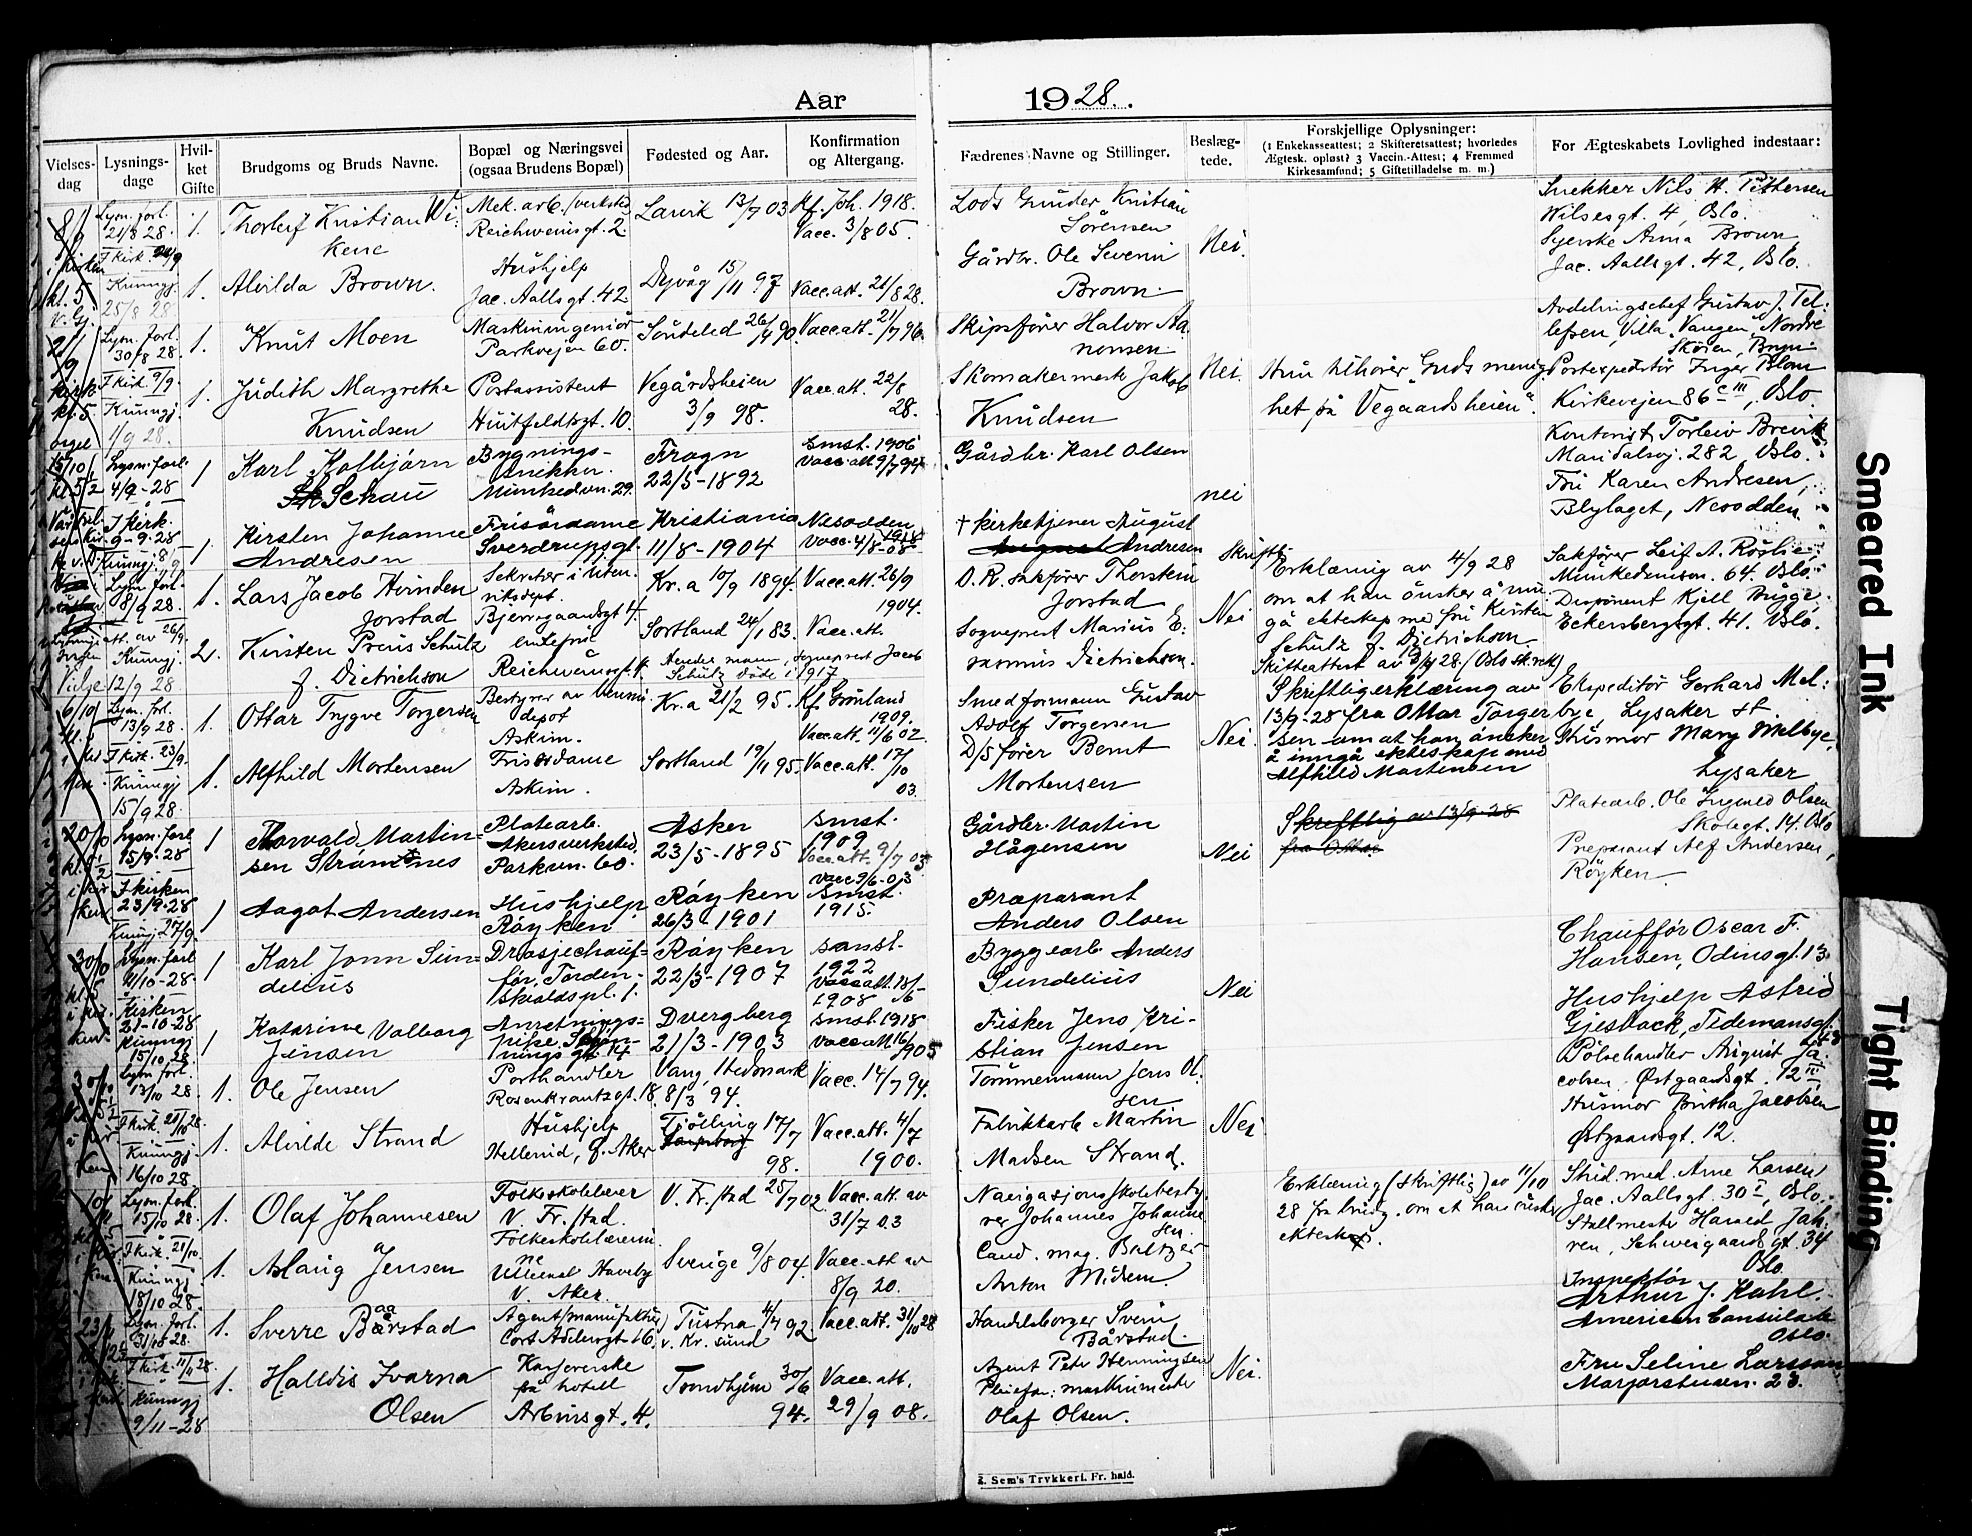 Aar
1928.
Vielses-
dag
Lysnings-
dage
Hvil-
ket
Gifte
Brudgoms og Bruds Navne.
Bopæl og Næringsvei
(ogsaa Brudens Bopæl)
Fødested og Aar.
Konfirmation
og Altergang.
Fædrenes Navne og Stillinger.
Beslæg-
tede.
Forskjellige Oplysninger:
(1 Enkekasseattest; 2 Skifteretsattest; hvorledes
Ægtesk. opløst? 3 Vaccin.-Attest; 4 Fremmed
Kirkesamfund; 5 Giftetilladelse m. m.)
For Ægteskabets Lovlighed indestaar:
Lysn. forl.
21/8 28.
1.
Thorleif Kristian Wi-
kene
Mek. arb.
Reichweinsgt. 2
Larvik 13/7 03
Kf. Joh. 1918.
Vacc. 3/8 05.
Lods Gunder Kristian
Sørensen
Nei.
Snekker Nils H. Pettersen
Wilsesgt. 4, Oslo.
Syerske Anna Brown
Jac. Aallsgt. 42, Oslo.
kl. 5
Kunngj.
25/8 28
1.
Alvilda Brown.
Hushjelp
Jac. Aallsgt. 42
Dyvåg 15/11 97
Vacc. att. 21/8 28.
Gårdbr. Ole Severin
Brown.
Lysn. forl.
30/8 28.
1.
Knut Moen
Maskiningeniør
Parkvejen 60.
Søndeled 26/4 90
Vacc. att. 21/7 96.
Skipsfører Halvor Aa-
nonsen.
Nei.
Hun tilhører "Guds menig-
het på Vegaardsheien".
Avdelingschef Gustav J. Tel-
lefsen, Villa "Vangen", Nordre
Skøien, Bryn.
Postexpeditør Inger Blom
Kirkevejen 86 c III, Oslo.
F kirk. 9/9.
Kunngj.
1/9 28.
1.
Judith Margrethe
Knudsen
Postassistent
Huitfeldtsgt. 10.
Vegårdsheien
3/9 98.
Vacc. att. 22/8
28.
Skomakermester Jakob
Knudsen
15/10
Lysn. forl.
4/9-28
1
Karl Kolbjørn
Schau
Bygnings-
snekker.
Munkedvn. 29.
Frogn
22/5-1892
Smst. 1906
Vacc. att 9/7 94.
Gårdbr. Karl Olsen
nei
Kontorist Torleiv Breivik
Maridalsvj. 282, Oslo.
Fru Karen Andresen,
Blylaget, Nesodden
I Kirk.
9-9-28
1.
Kirsten Johanne
Andresen
Frisørdame
Sverdrupsgt.
Kristiania
11/8-1904
Nesodden
1918
Vacc. 4/8-08
+ kirketjener August
Andresen
Lysn. forl.
8/9 28.
1.
Lars Jacob Hvinden
Jorstad
Sekretær i uten-
riksdept.
Bjerregaardsgt 4.
Kr.a 10/9 1894.
Vacc. att. 26/9
1904.
O. R. sakfører Thorstein
Jorstad
Nei
Skriftl.
Erklæring av 4/9 28
om at han ønsker å inn-
gå ekteskap med fru Kirsten
Schutz f. Dietrichson.
Skifteattest av 13/9 28. (Oslo sk.rett)
Sakfører Leif A. Røslie,
Munkedamsvn. 64. Oslo.
Disponent Kjell Bugge,
Eckersbergsgt. 41. Oslo.
Kunngj.
12/9 28
2.
Kirsten Preus Schutz
f. Dietrichson
enkefrue
Reichweinsgt. 4.
Sortland 24/1 83.
Hendes mann, sogneprest Jacob
Schutz døde i 1917
Vacc. att.
Sogneprest Marius E-
rasmus Dietrichson.
6/10
Lysn. forl.
13/9 28.
1.
Ottar Trygve Torgersen
Bestyrer av
depot
Askim.
Kr.a 21/2 95.
Kf. Grønland
1909.
Vacc. att. 11/6 02.
Smedformann Gustav
Adolf Torgersen
Nei.
Skriftlig erklæring av
13/9-28 fra Ottar Torger-
sen om at han ønsker
å inngå ekteskap med
Alfhild Mortensen
Ekspeditør Gerhard Mel-
bye, Lysaker st
Husmor Mary Melbye,
Lysaker
F kirk. 23/9.
Kunngj
15/9 28.
1.
Alfhild Mortensen
Frisørdame
Askim.
Sortland 19/1 95.
Vacc. att. 17/10
03.
D/S fører Bernt
Mortensen
20/10
Lysn. forl
15/9-28
1
Thorvald Martin-
sen Strømnes
Platearb.
Akersverksted.
Parkvn. 60.
Asker
23/5-1895
Smst.
1909
Vacc. att. 9/7 03
Gårdbr. Martin
Hågensen
Nei
Skriftlig av 13/9-28
fra Ottar
Platearb. Ole Ingmod Olsen
Skolegt. 14. Oslo
Preparant Alf Andersen,
Røyken.
F kirken
23/9-28
Kunngj 27/9.
1
Aagot Andersen
Hushjelp
Røyken
Røyken
26/3-1901
Smst.
1915.
Præparant
Anders Olsen
30/10
Lysn. forl
4/10-28
1
Karl Jonn Sun-
delius
Drosjechauf-
før, Torden-
skioldspl. 1.
Røyken
22/3-1907
Smst.
1922
Byggearb Anders
Sundelius
Nei
Chauffør Oscar F.
Hansen, Odinsgt. 13.
Hushjelp Astrid
Gjesbock, Tidemansgt.
Kirken
21-10-28
Kunngj
15/10 28
1
Katarine Valborg
Jensen
Anretnings-
pike
Dvergberg
21/3-1903
Smst. 1918
Vacc. att 16/
1905
Fisker Jens Kri-
stian Jensen
Lysn forl.
13/10 28.
1.
Ole Jensen
Porthandler
Rosenkrantzgt. 18.
Vang, Hedmark
8/3 94.
Vacc. 14/7 94.
Tømmermann Jens Ol-
sen
Nei
Pølsehandler August Ja-
cobsen, Østgaardsgt. 12 III
Husmor Britha Jacobsen
Østgaardsgt. 12.
F kirk. 21/10 28.
Kunngj.
16/10 28.
1.
Alvilde Strand
Hushjelp
Hellerud, Ø. Aker
Tjølling 17/7
98.
Vacc. att. 4/7
1900.
Fabrikkarb Martin
Madsen Strand.
10/11
Lysn. forl.
15/10 28.
1.
Olaf Johannesen
Folkeskolelærer
V. Fr.stad.
V. Fr.stad 25/7 02
Vacc. att av
31/7 03
Navigasjonsskolebesty-
rer Johannes Johanne-
sen.
Erklæring (skriftlig) av 11/10
28 fra brudg. om at han ønsker
ekteskap.
Stud. med. Arne Larsen
Jac. Aallsgt. 30 I, Oslo.
Stallmester Harald Jah-
ren, Schweigaardsgt. 34
Oslo.
F kirk. 21/10.
Kunngj
18/10 28.
1.
Aslaug Jensen
Folkeskolelærerin-
ne
Ullevaal Haveby
V. Aker.
Sverige 9/8 04.
Vacc. att av
8/9 20.
Cand. mag. Baltzer
Anton Midsem.
23/11
Lysn. forl.
31/10 28.
1.
Sverre Bårstad
Agent (manufaktur)
Cort Adelersgt 16.
Tustna 4/4 92
v. Kr. sund
Vacc. att. 31/10 28
Handelsborger Svein
Bårstad.
Nei.
Inspektør
Arthur J. Kahl.
American Consulate
Oslo.
Fru Seline Larsson
F kirk. 11/11 28.
Kunngj
9/11-28
1.
Halldis Ivarna
Olsen
Kassererske
på hotell
Arbinsgt. 4.
Trondhjem 30/6
94.
Vacc. att.
29/9 08.
Agent Petr Henningsen
Pleiefar: maskinmester
Olaf Olsen.
E. Sem's Trykkeri. Fr.hald.
Smeared Ink
Tight Binding